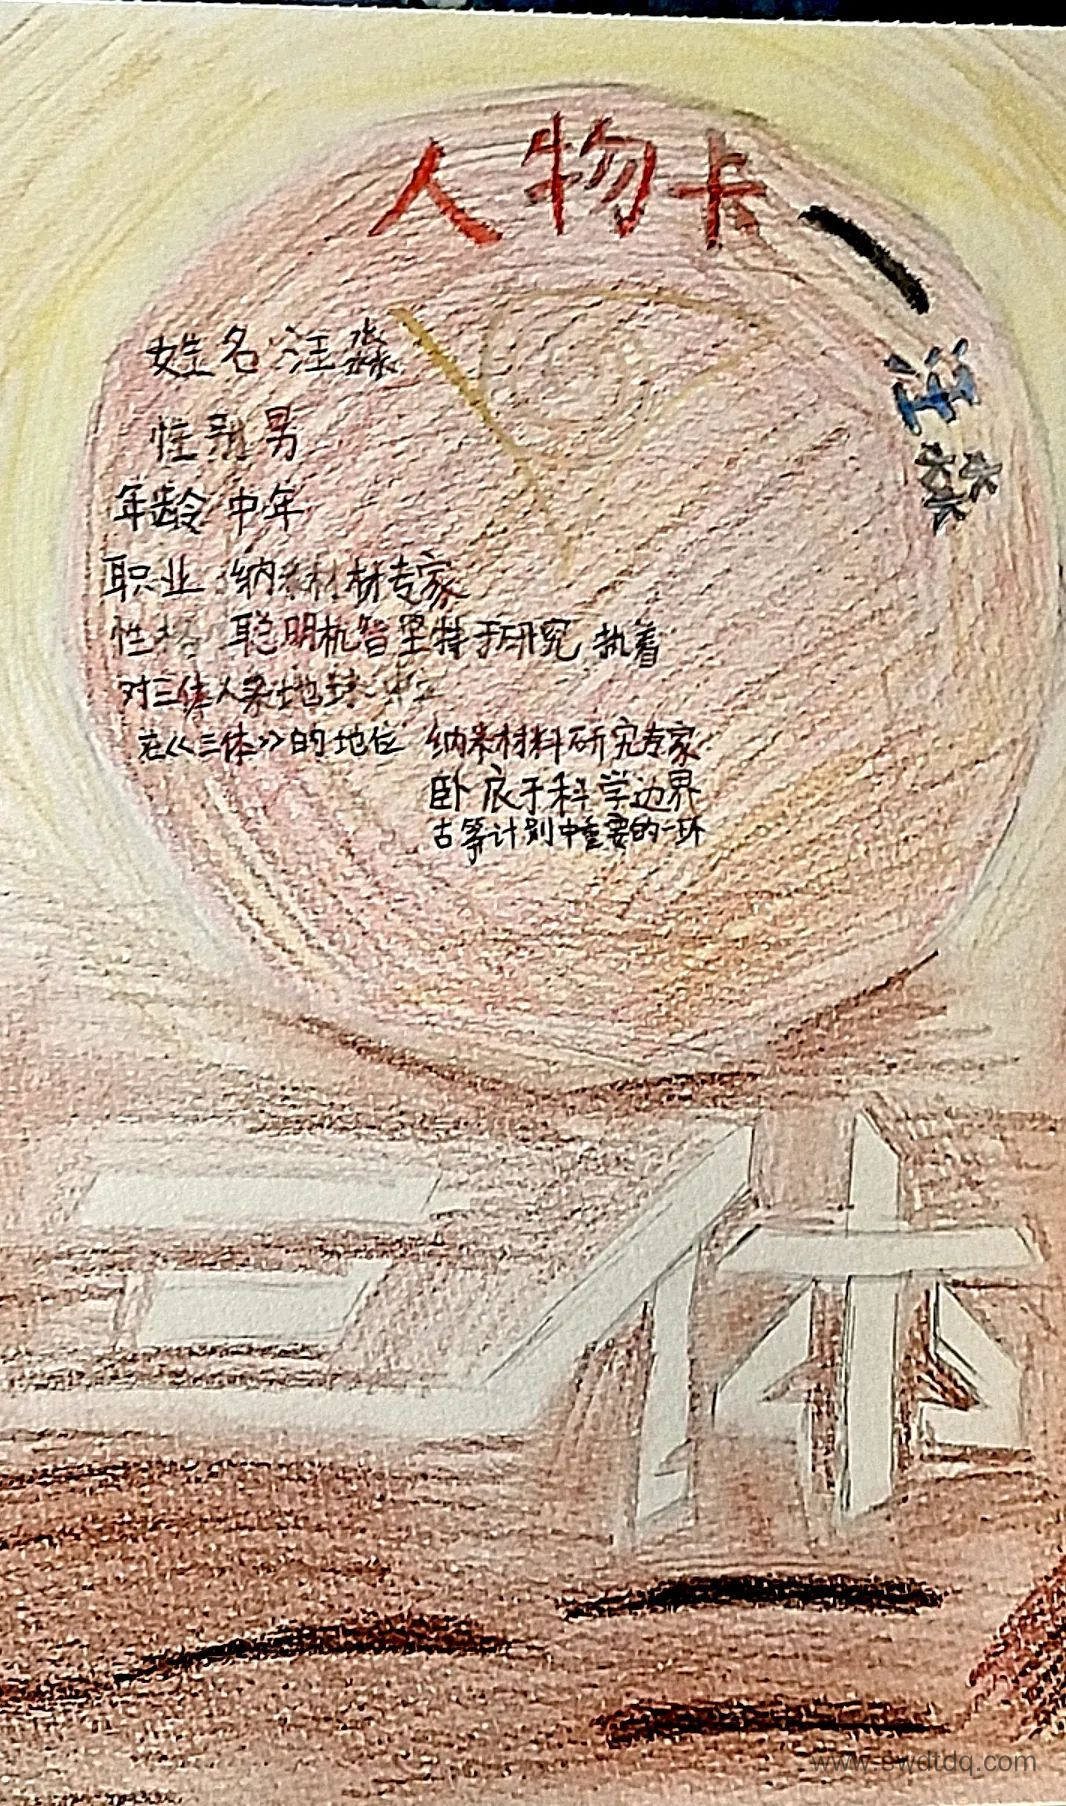 人物卡—汪淼
姓名 汪淼
性别 男
年龄 中年
职业 纳米材料专家
性格 聪明机智坚持于研究 执着
对三体人来地球
在《三体》的地位 纳米材料研究专家
卧底于科学边界
古筝计划中重要的一环
三体
www.swdtdq.com